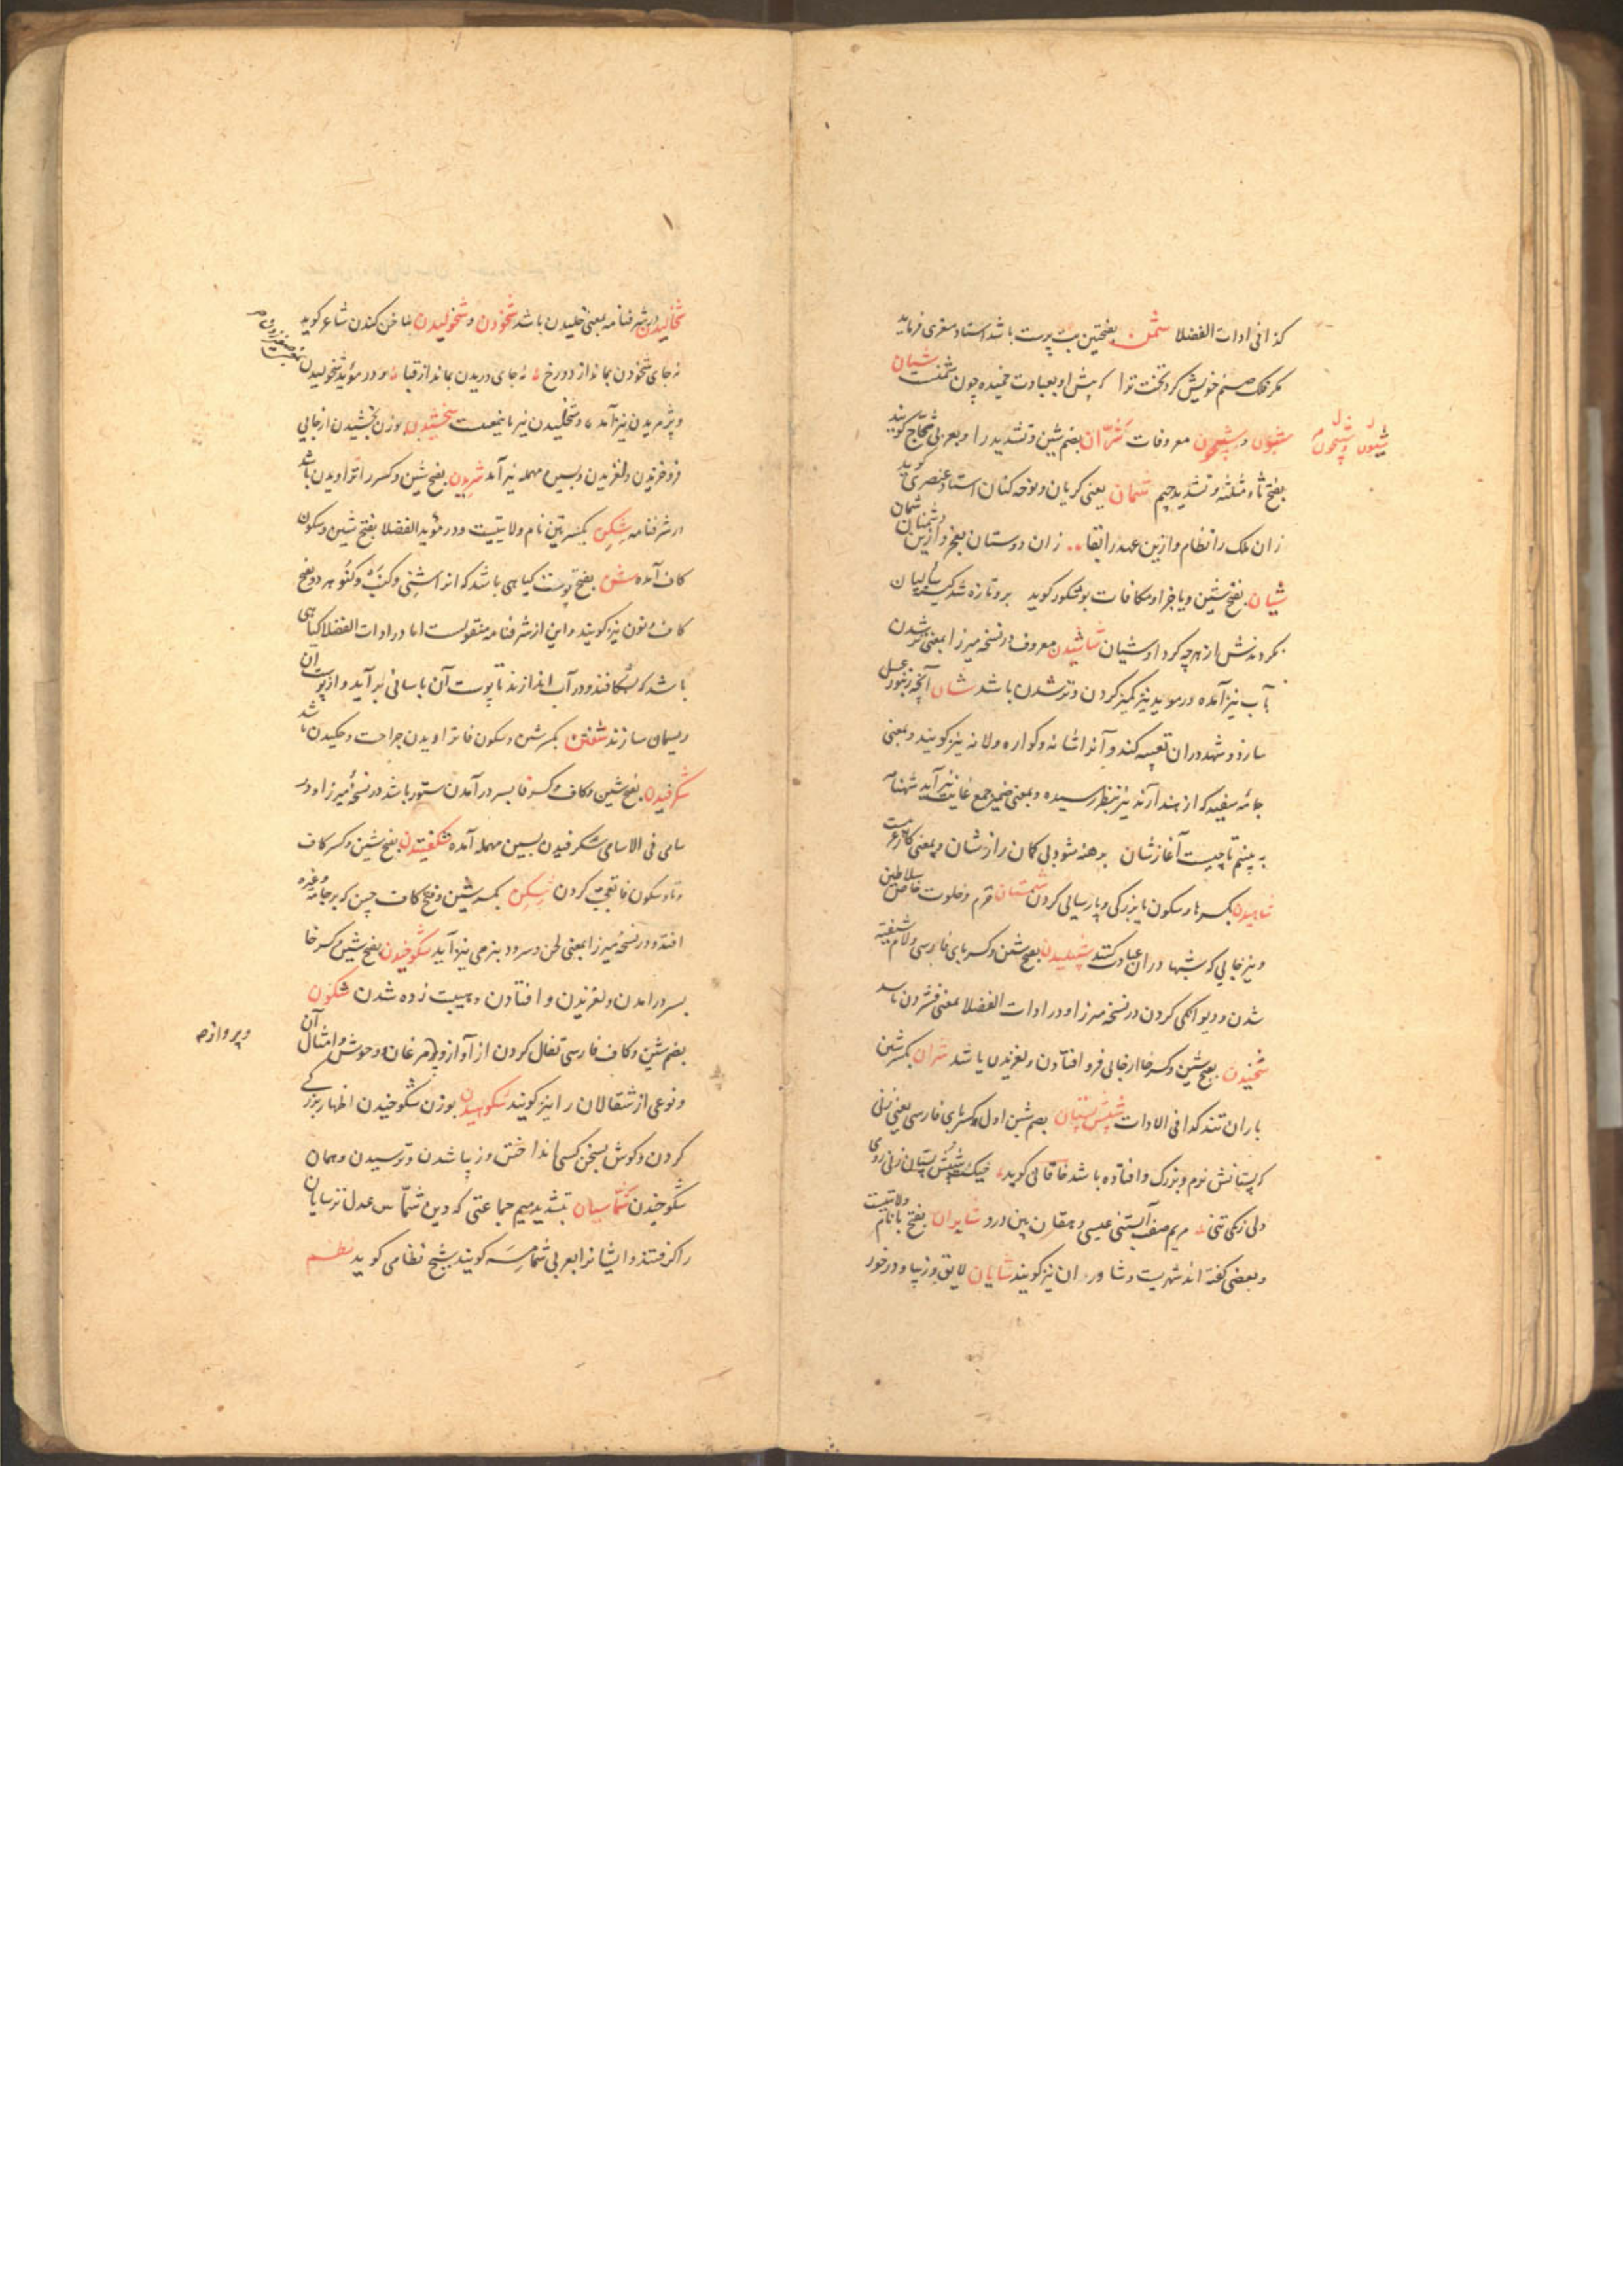 کذا فی ادات الفضلا شمن بفتحتین بت پرست باشد استاد معزی فرماید
مکر فلک صنم خویش کرد تخت ترا که پیش او بعبادت خمیده چون شمنست شیان
و معروفات شرّان بضم شین و تشدید را و بعربی ثجاج کویند
شیون و شیخون
بفتح ثاء مثلثه و تشدید جیم شمان یعنی کریان و نوحه کنان استاد عنصری کوید
زان ملک را نظام وازین عهد را بقا زان دوستان بفخر وازین دشمنان شمان
شیان بفتح شین و یا جزا و مکافات بوشکور کوید برو تازه شد کینه سالیان
بکردندش از هرچه کرد او شیان شاشیدن معروف در نسخه میرزا بمعنی تر شدن
بآب نیز آمده در موید نیز کمیز کردن و تر شدن باشد شان آنچه زنبور عسل
سازد و شهد دران تعبیه کند و آنرا شانه و کواره و لانه نیز کویند و بمعنی
جامه سفید که از هند آرند نیز بنظر رسیده و بمعنی ضمیر جمع غایب نیز آید شهنامه
به بینم تا چیست آغازشان برهنه شود بی کمان رازشان و بمعنی کار
شاهیدن بکسر ها و سکون یا بزرکی و پارسایی کردن شبستان حرم و خلوت خاص سلاطین
و نیز جایی که شبها دران عبادت کنند شپیلیدن بفتح شین و کسر بای فارسی و لام شیفته
شدن و دیوانکی کردن در نسخه میرزا و در ادات الفضلا بمعنی فشردن باشد
شخیدن بفتح شین و کسر خا از جائی فرو افتادن و لغزیدن باشد شران بکسر شین
باران تند کذا فی الادات شپش پستان بضم شین اول و کسر بای فارسی یعنی زنی
که پستانش نرم و بزرک و افتاده باشد خاقانی کوید خیک شپش پستان زنی رومی
دلی زنکی تنی مریم صفت آبستنی عیسی دهقان بین درو شابران بفتح با نام ولایتیست
و بعضی کفته اند شهریست و شاوران نیز کویند شایان لایق و زیبا و درخور
شخالیدن در شرفنامه بمعنی خلیدن باشد شخودن و شخولیدن بناخن کندن شاعر کوید
نه جای شخودن بماند از دو رخ نه جای دریدن بماند از قبا و در موید شخولیدن
و پژمریدن نیز آمده و شخلیدن نیز باینمعنیست شخشیدن بوزن بخشیدن از جایی
فرو خزیدن و لغزیدن و بسین مهمله نیز آمده شریدن بفتح شین و کسر را تراویدن باشد
در شرفنامه شکن بکسرتین نام ولایتیست و در موید الفضلا بفتح شین و سکون
کاف آمده شن بفتح پوست کیاهی باشد که انرا شنی و کنب و کنو هر دو بفتح
کاف و نون نیز کویند و این از شرفنامه منقولست اما در ادات الفضلا کیاهی
باشد که بشکافند و در آب اندازند تا پوست آن باسانی برآید و از پوست آن
ریسمان سازند شفتن بکسر شین و سکون فا تراویدن جراحت و چکیدن باشد
شکرفیدن بفتح شین و کاف و کسر فا بسر در آمدن ستور باشد در نسخه میرزا و در
سامی فی الاسامی شکرفیدن بسین مهمله آمده شکفتیدن بفتح شین و کسر کاف
و تا و سکون فا تعجب کردن شکن بکسر شین و فتح کاف چین که بر جامه و غیره
افتد و در نسخه میرزا بمعنی لحن و سرود بنرمی نیز آید شکوخیدن بفتح شین و کسر خا
بسر در امدن و لغزیدن و افتادن و هیبت زده شدن شکون
بضم شین و کاف فارسی تفال کردن از آواز و مرغان و وحوش و امثال آن
و پروازه
و نوعی از شقالان را نیز کویند شکوهیدن بوزن شکوخیدن اظهار بزرکی
کردن و کوش بسخن کسی انداختن و زیبا شدن و ترسیدن و همان
شکوخیدن شمّاسیان بتشدید میم جماعتی که دین شمّاس عدل ترسایان
را کرفتند و ایشانرا بعربی شماسه کویند شیخ نظامی کوید نظم